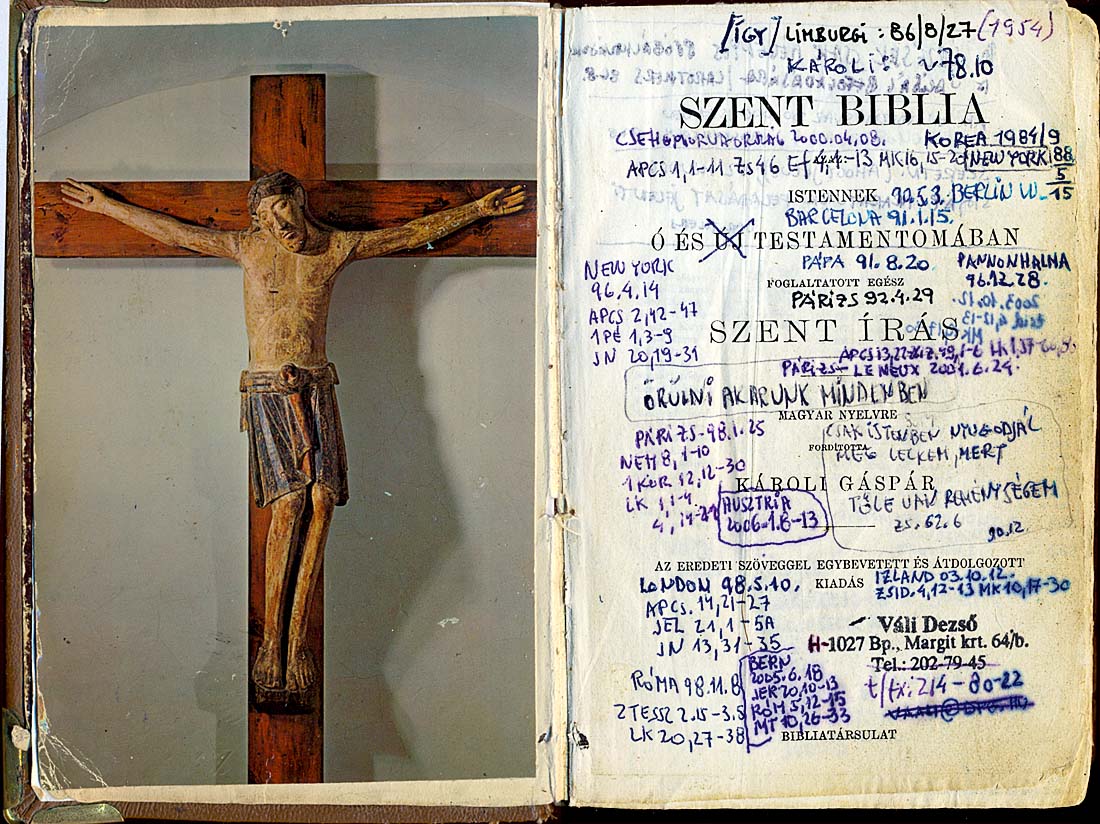 [ÍGY] LIMBURGI: 86/8/27 (1954)
KÁROLI: ~78.10
SZENT BIBLIA
2000.04.08.
KOREA 1984/9
APCS 1,1-11 ZS46 Ef 4,1-13 MK16, 15-20
NEW YORK 88
5
15
ISTENNEK
90.5.3. BERLIN W.
BARCELONA 91.1.15.
Ó ÉS ÚJ TESTAMENTOMÁBAN
PÁPA 91.8.20.
PANNONHALMA
96.12.28.
NEW YORK
96.4.14
APCS 2,42-47
1PE 1,3-9
JN 20,19-31
FOGLALTATOTT EGÉSZ
PÁRIZS 92.4.29
SZENT ÍRÁS
PÁRIZS - LE NEUX 2001.6.24.
ÖRÜLNI AKARUNK MINDENBEN
MAGYAR NYELVRE
FORDÍTOTTA
KÁROLI GÁSPÁR
PÁRIZS-98.1.25
NEH 8,1-10
1KOR 12,12-30
LK 1,1-4
4, 14-21
CSAK ISTENBEN NYUGODJÁL
MEG LELKEM, MERT
TŐLE VAN REMÉNYSÉGEM
ZS. 62.6
90.12
AUSZTRIA
2006.1.6-13
AZ EREDETI SZÖVEGGEL EGYBEVETETT ÉS ÁTDOLGOZOTT
KIADÁS
LONDON 98.5.10.
APCS. 14,21-27
JEL 21,1-5A
JN 13,31-35
IZLAND 03.10.12.
ZSID. 4,12-13 MK10,17-30
Váli Dezső
H-1027 Bp., Margit krt. 64/b.
Tel.: 202-79-45
t/fx: 214-80-22
RÓMA 98.11.8
2TESSZ 2.15-3.5
LK 20,27-38
BERN
2005.6.18
JER 20,10-13
RÓM 5,12-15
MT 10,26-33
BIBLIATÁRSULAT